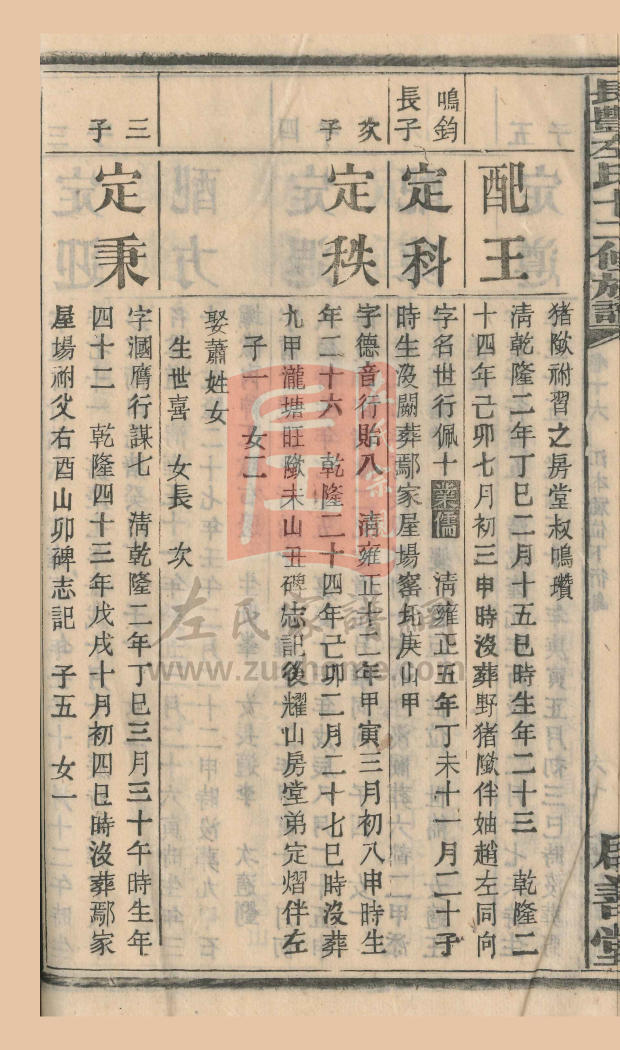 長豐左氏十二修族譜
居善堂
豬隞祔習之房堂叔鳴瓚
配王
清乾隆二年丁巳二月十五巳時生年二十三　乾隆二
十四年己卯七月初三申時沒葬野豬隞伴妯趙左同向
鳴鈞
長子
定科
字名世行佩十業儒　清雍正五年丁未十一月二十子
時生沒闕葬鄢家屋場窰圫庚山甲
次子
定秩
字德音行貽八　清雍正十二年甲寅三月初八申時生
年二十六　乾隆二十四年己卯二月二十七巳時沒葬
九甲瀧塘旺隞未山丑碑志記後耀山房堂弟定熠伴左
子一　女二
娶蕭姓女
生世喜　女長　次
三子
定秉
字漍膺行謀七　清乾隆二年丁巳三月三十午時生年
四十二　乾隆四十三年戊戌十月初四巳時沒葬鄢家
屋場祔父右酉山卯碑志記　子五　女一
左氏家譜網
www.zuohome.com